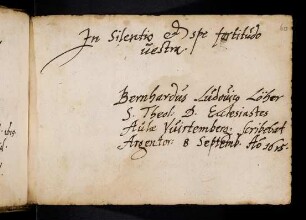 In Silentio et spe fortitudo
vestra.
Bernhardus Ludovic9 Löher
S. Theol. D. Ecclesiastes
Aulæ Wirtemberg. scribebat
Argentor. 8 Septemb. Aō 1615.
60